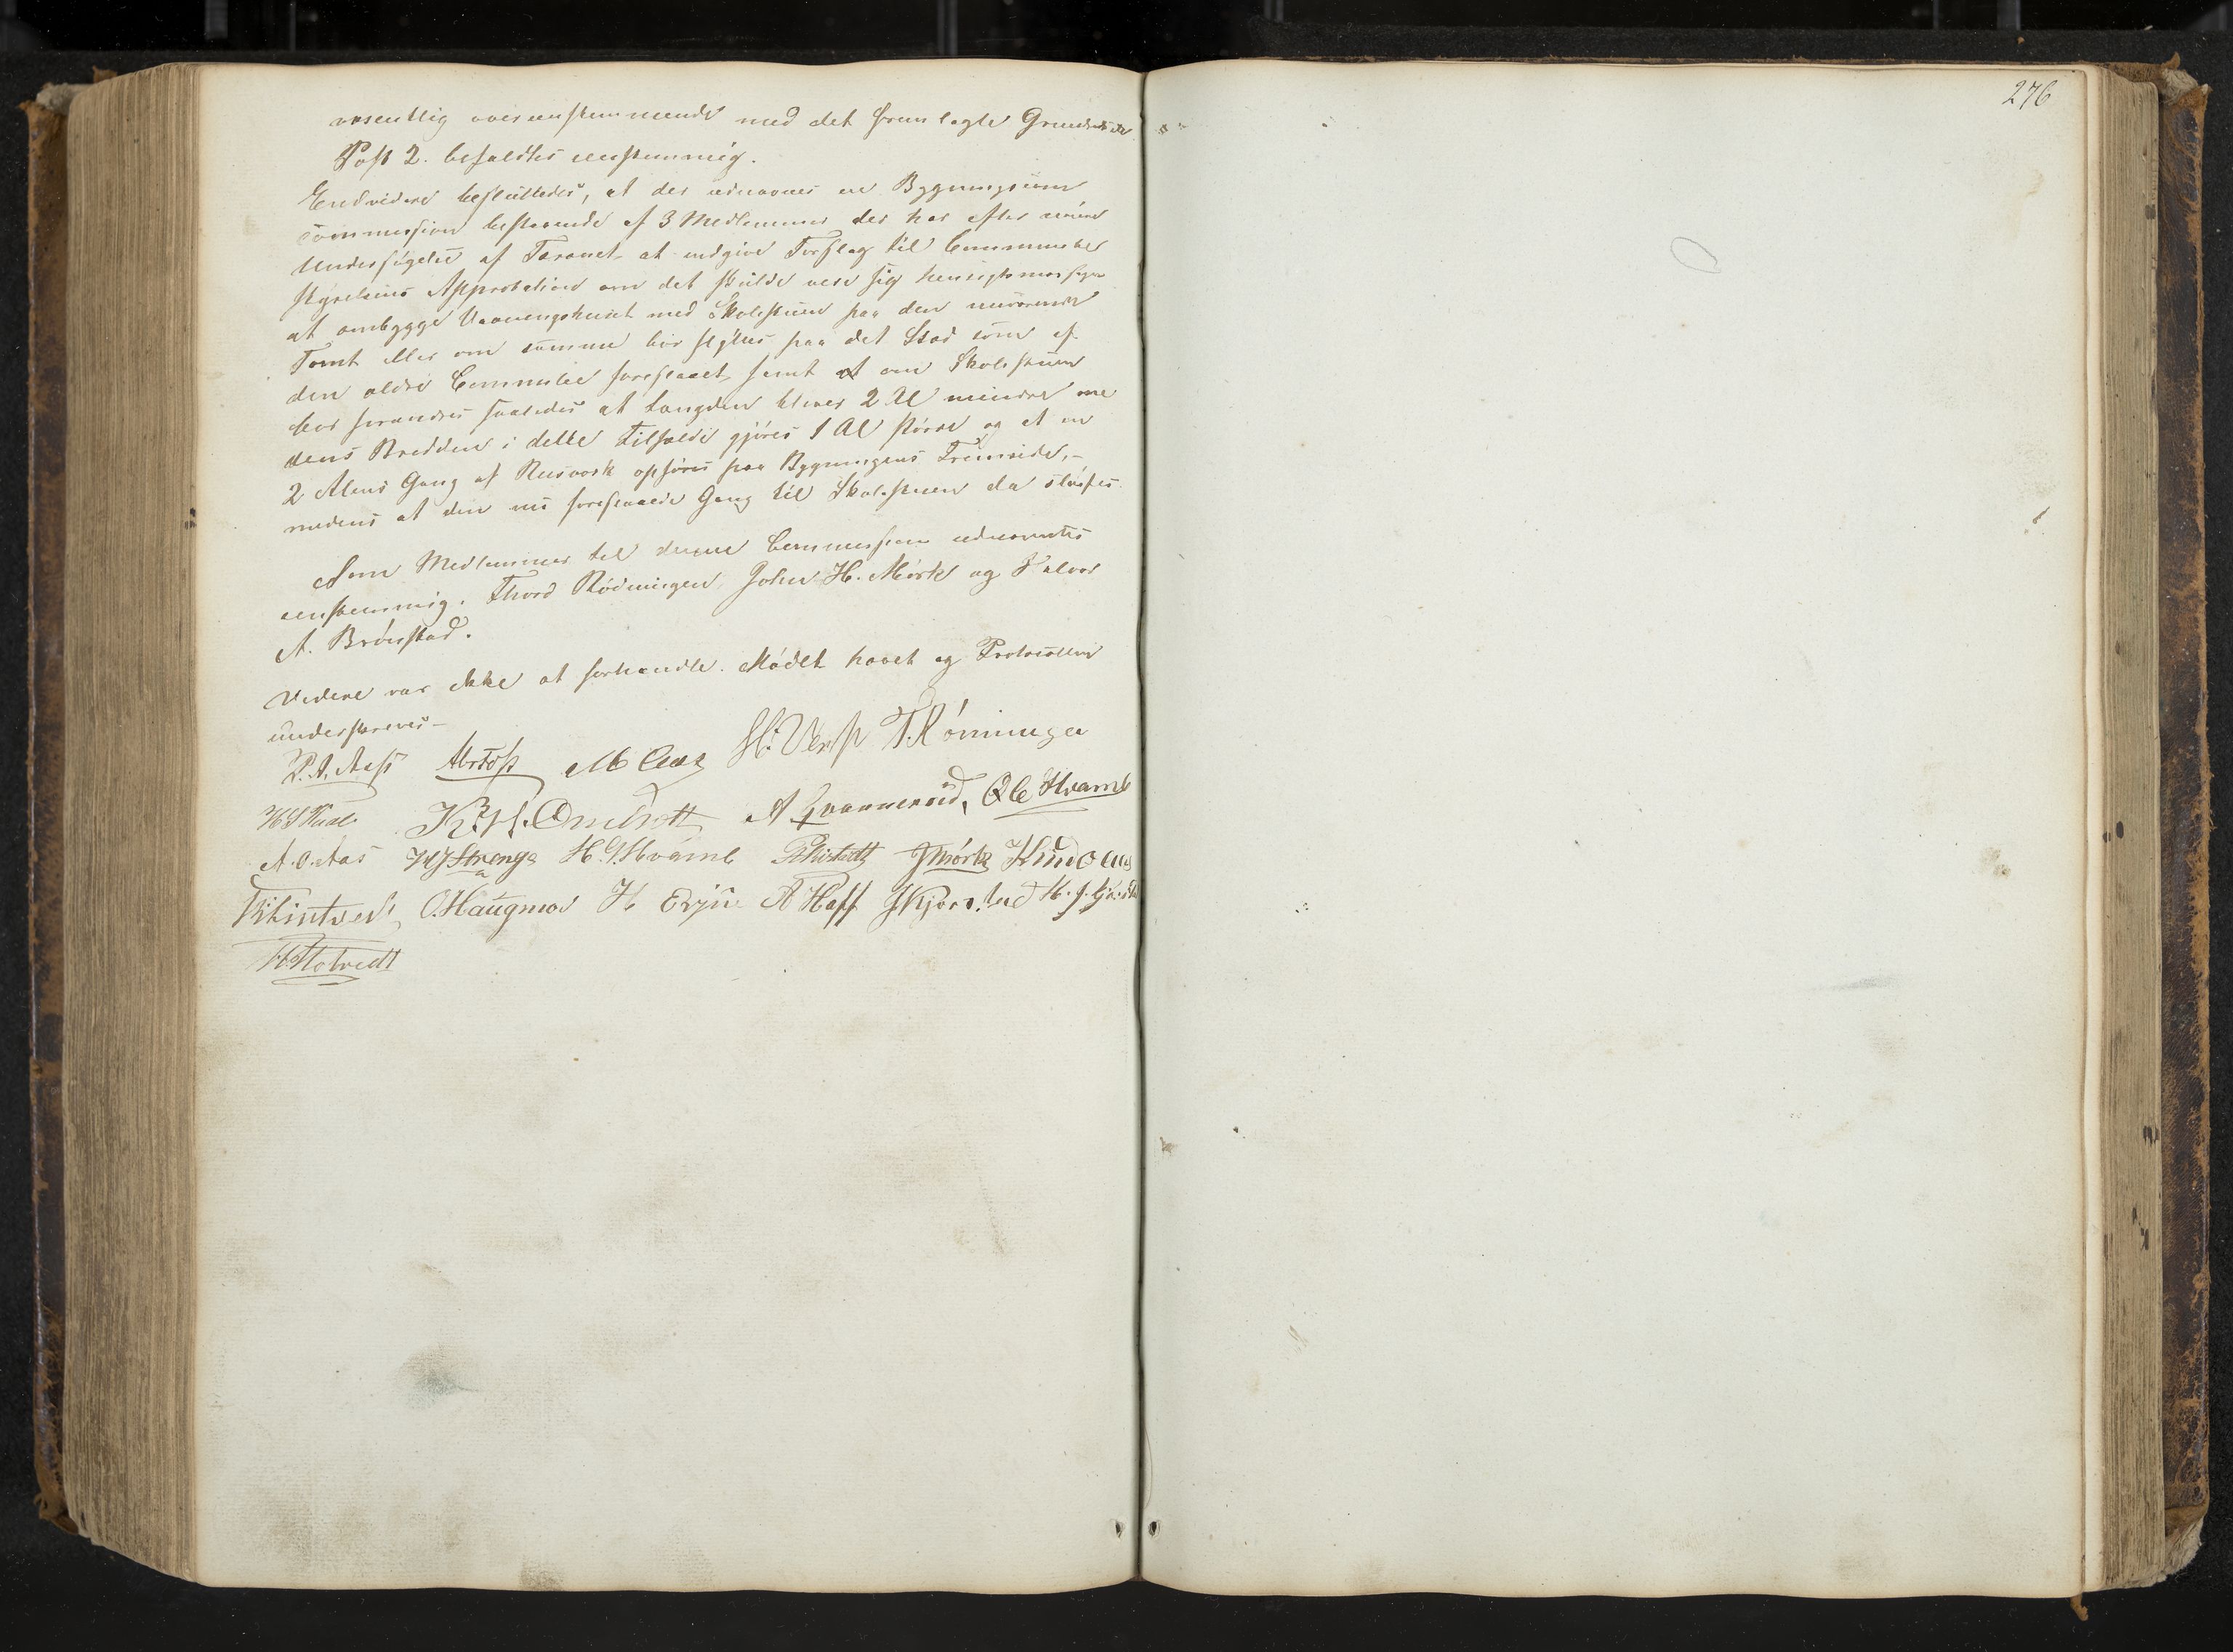 væsentlig overeenstemmende med det fremlagte
Post 2. besluttes eenstemmig.
Endvidere besluttedes, at der udnævnes en Bygnings
commission bestaaende af 3 Medlemmer der har efter nøiere
Undersøgelse af Tærænet at indgive Forslag til Communebe
styrelsens Approbation om det skulde vese sig hensigtsmæssigen
at ombygge Vaaningshuset med Skolestuen paa den nuværende
Tomt eller om samme bør flyttes paa det Sted som af
den ældre Commitee foreslaaet, samt at om Skolestuen
bør forandres saaledes at Længden bliver 2 Al mindre me
dens Bredden i dette Tilfælde gjöres 1 Al større og at en
2 Alens Gang af Reisværk opføres paa Bygningens Fremside,-
medens at den nu foreslaaede Gang til Skolestuen da sløifes.
Som Medlemmer til denne Commission udnævntes
eenstemmig. Thord Rødningen, John H. Mørk og Halvor
A. Brönstad.
Videre var ikke at forhandle. Mødet hævet og Protocollen
underskreves-
P. A. Aass M Aas H. Verp T. Rönningen
K. H. Omholt A Grannerud, O C Hvamb
A. O. Aas H J Strenge H. G. Hvamb J Mørk Knud O Aas
O. Haugmo A Hoff
H. Holtvedt
276